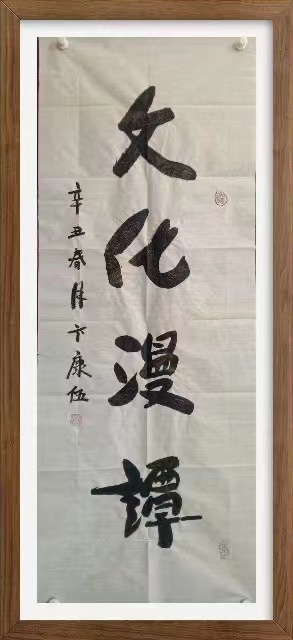 文化漫譚
辛丑春月卞康伍